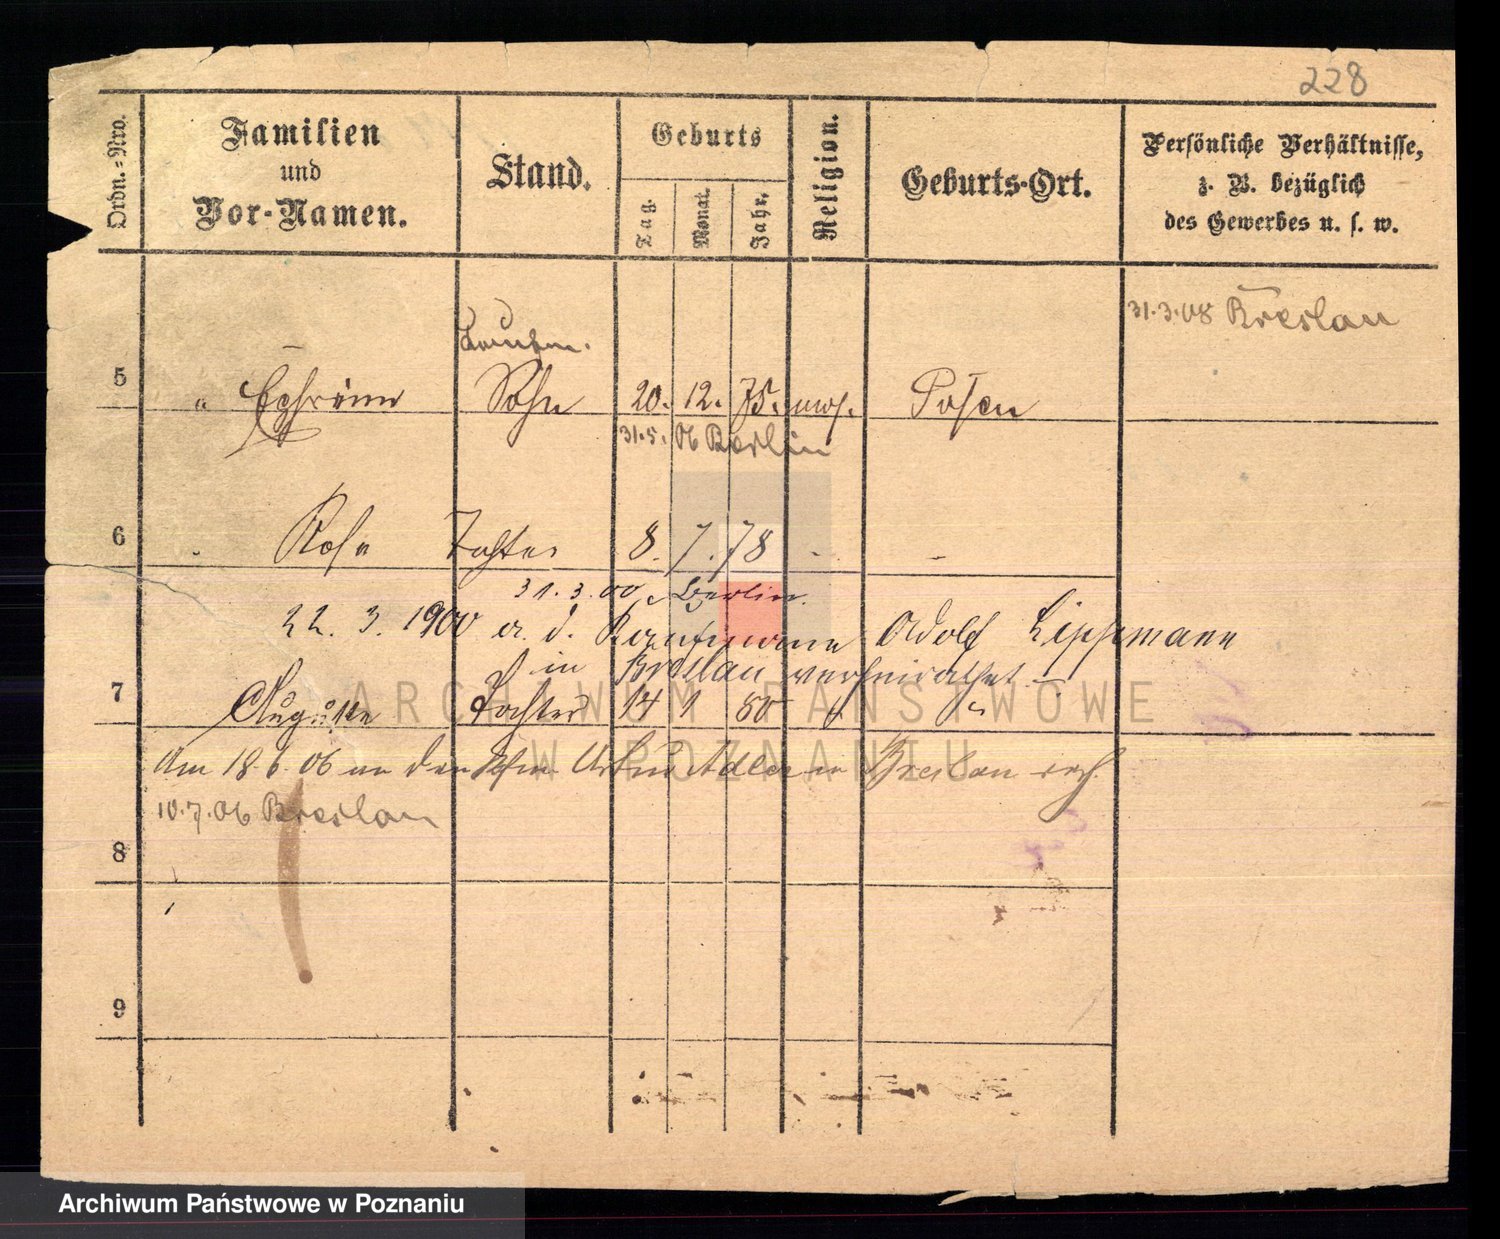 228
Ordn.-Nro.
Familien
und
Vor-Namen.
Stand.
Geburts
Tag.
Monat.
Jahr.
Religion.
Geburts-Ort.
Persönliche Verhältnisse,
z. B. bezüglich
des Gewerbes u. s. w.
31.3.08 Breslau
Kaufm.
5 " Ephraim Sohn 20. 12. 75. mos. Posen
31.5. 06 Berlin
6 Rosa Tochter 8. 7. 78
31. 3. 00 Berlin.
22. 3. 1900 a. d. Kaufmann Adolf Lippmann
in Breslau verheirathet.
7 Auguste Tochter 14 1 80
Am 18.6.06 an den Kfm. Adler in Breslau
10.7.06 Breslau
8
9
ARCHIWUM PAŃSTWOWE
W POZNANIU
Archiwum Państwowe w Poznaniu